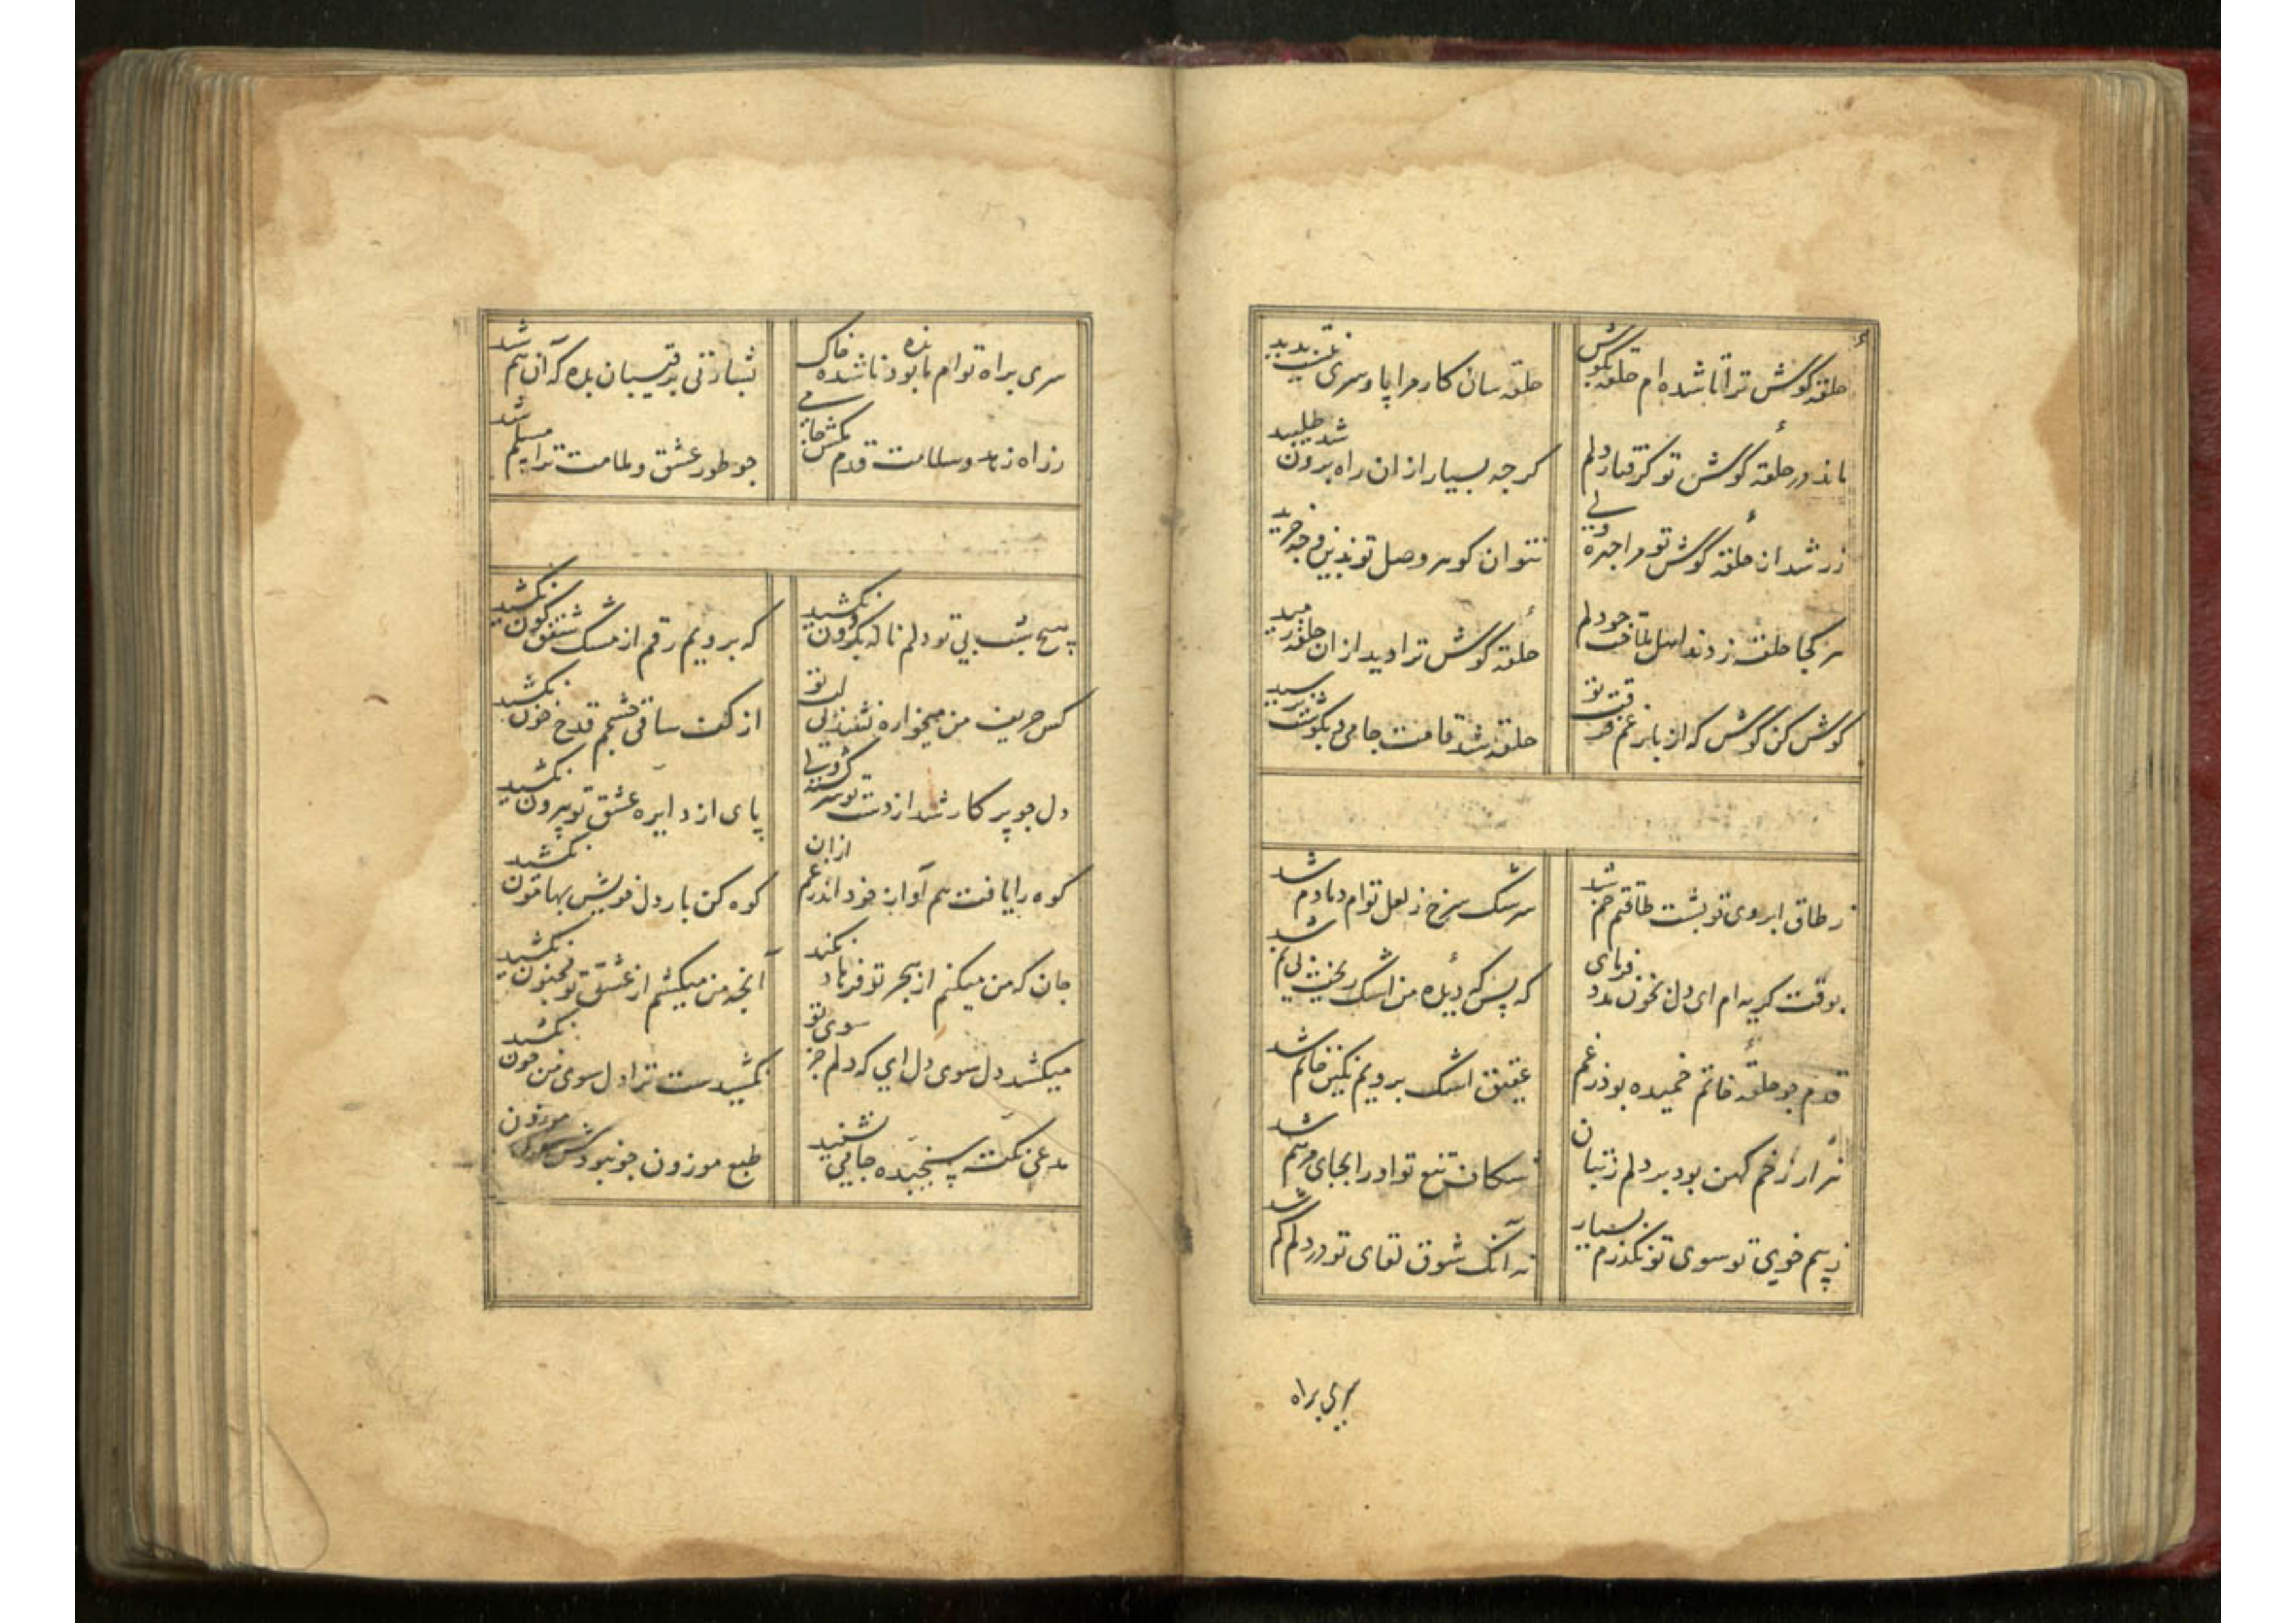 حلقه گوش ترا تا شده ام حلقه بگوش
حلقه سان کار مرا پا و سری نیست پدید
ماند در حلقه گوش تو گرفتار دلم
کرچه بسیار ازان راه برون شد طلبید
زر شد از حلقه گوش تو مرا چهره ولی
نتوان کوهر وصل تو بدین وجه خرید
هر کجا حلقه زدند اهل ملاقت جو دلم
حلقه گوش ترا دید ازان حلقه رمید
گوش کن گوش که از بار غم فرقت تو
حلقه شد قامت جامی و بگوشت نرسید
ز طاق ابروی تو پشت طاقتم خم شد
سرشک سرخ ز لعل توام دمادم شد
بوقت کریه ام ای دل بخون مدد فرمای
که بس که دیده من اشک ریخت بی نم شد
قدم جو حلقه خاتم خمیده بود ز غم
عقیق اشک برویم نکین خاتم شد
هزار زخم کهن بود بر دلم ز بتان
شکاف تیغ تو او را بجای مرهم شد
ز بیم خوی تو سوی تو نکذرم بسیار
نه آنک شوق لقای تو در دلم کم شد
سری براه
سری براه توام مانده بود تا شده خاک
بشارتی برقیبان بده که آن هم شد
ز راه زهد و سلامت قدم بکش جامی
جو طور عشق و ملامت ترا مسلم شد
هیچ شب بی تو دلم ناله بکردون نکشید
که برویم رقم از مشک شفق کون نکشید
کس حریف من میخواره نشد بی لب تو
از کف ساقی چشمم قدح خون نکشید
دل جو پرکار شد از دست تو سرکشته ولی
پای از دایره عشق تو بیرون نکشید
کوه را یافت هم آواز خود اندر غم ازان
کوه کن بار دل خویش بهامون نکشید
جان که من میکنم از هجر تو فرهاد نکند
آنچه من میکشم از عشق تو مجنون نکشید
میکشد دل سوی دل ای که دلم جز سوی تو
نکشیدست ترا دل سوی من چون نکشید
مدعی نکته سنجیده جامی نشنید
طبع موزون جو نبودش سوی موزون